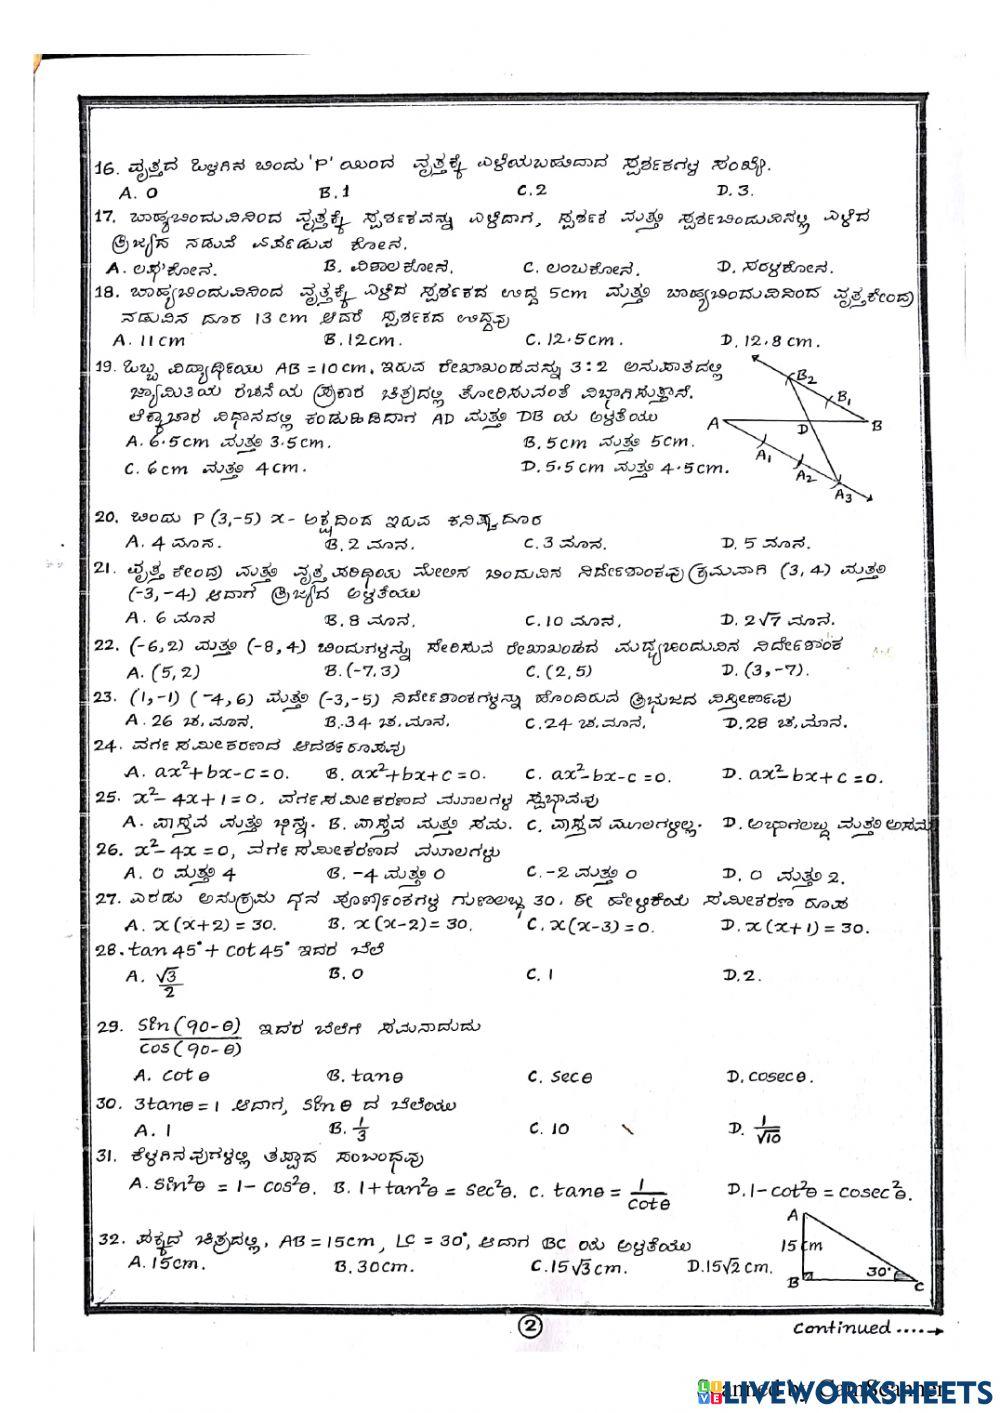 16. ವೃತ್ತದ ಒಳಗಿನ ಬಿಂದು 'P' ಯಿಂದ ವೃತ್ತಕ್ಕೆ ಎಳೆಯಬಹುದಾದ ಸ್ಪರ್ಶಕಗಳ ಸಂಖ್ಯೆ.
A. 0 B. 1 C. 2 D. 3.
17. ಬಾಹ್ಯಬಿಂದುವಿನಿಂದ ವೃತ್ತಕ್ಕೆ ಸ್ಪರ್ಶಕವನ್ನು ಎಳೆದಾಗ, ಸ್ಪರ್ಶಕ ಮತ್ತು ಸ್ಪರ್ಶಬಿಂದುವಿನಲ್ಲಿ ಎಳೆದ
ತ್ರಿಜ್ಯದ ನಡುವೆ ಏರ್ಪಡುವ ಕೋನ.
A. ಲಘುಕೋನ. B. ವಿಶಾಲಕೋನ. C. ಲಂಬಕೋನ. D. ಸರಳಕೋನ.
18. ಬಾಹ್ಯಬಿಂದುವಿನಿಂದ ವೃತ್ತಕ್ಕೆ ಎಳೆದ ಸ್ಪರ್ಶಕದ ಉದ್ದ 5cm ಮತ್ತು ಬಾಹ್ಯಬಿಂದುವಿನಿಂದ ವೃತ್ತಕೇಂದ್ರ
ನಡುವಿನ ದೂರ 13 cm ಆದರೆ ಸ್ಪರ್ಶಕದ ಉದ್ದವು
A. 11 cm B. 12cm. C. 12.5cm. D. 12.8 cm.
19. ಒಬ್ಬ ವಿದ್ಯಾರ್ಥಿಯು AB = 10 cm. ಇರುವ ರೇಖಾಖಂಡವನ್ನು 3:2 ಅನುಪಾತದಲ್ಲಿ
ಜ್ಯಾಮಿತಿಯ ರಚನೆಯ ಪ್ರಕಾರ ಚಿತ್ರದಲ್ಲಿ ತೋರಿಸುವಂತೆ ವಿಭಾಗಿಸುತ್ತಾನೆ.
ಲೆಕ್ಕಾಚಾರ ವಿಧಾನದಲ್ಲಿ ಕಂಡುಹಿಡಿದಾಗ AD ಮತ್ತು DB ಯ ಅಳತೆಯು
A. 6.5cm ಮತ್ತು 3.5cm. B. 5cm ಮತ್ತು 5cm.
C. 6cm ಮತ್ತು 4cm. D. 5.5cm ಮತ್ತು 4.5cm.
A B D B₁ B₂ A₁ A₂ A₃
20. ಬಿಂದು P (3,-5) x- ಅಕ್ಷದಿಂದ ಇರುವ ಕನಿಷ್ಠ ದೂರ
A. 4 ಮಾನ. B. 2 ಮಾನ. C. 3 ಮಾನ. D. 5 ಮಾನ.
21. ವೃತ್ತ ಕೇಂದ್ರ ಮತ್ತು ವೃತ್ತ ಪರಿಧಿಯ ಮೇಲಿನ ಬಿಂದುವಿನ ನಿರ್ದೇಶಾಂಕವು ಕ್ರಮವಾಗಿ (3, 4) ಮತ್ತು
(-3, -4) ಆದಾಗ ತ್ರಿಜ್ಯದ ಅಳತೆಯು
A. 6 ಮಾನ B. 8 ಮಾನ. C. 10 ಮಾನ. D. 2√7 ಮಾನ.
22. (-6,2) ಮತ್ತು (-8,4) ಬಿಂದುಗಳನ್ನು ಸೇರಿಸುವ ರೇಖಾಖಂಡದ ಮಧ್ಯಬಿಂದುವಿನ ನಿರ್ದೇಶಾಂಕ
A. (5,2) B. (-7,3) C. (2,5) D. (3,-7).
23. (1,-1) (-4,6) ಮತ್ತು (-3,-5) ನಿರ್ದೇಶಾಂಕಗಳನ್ನು ಹೊಂದಿರುವ ತ್ರಿಭುಜದ ವಿಸ್ತೀರ್ಣವು
A. 26 ಚ.ಮಾನ. B. 34 ಚ.ಮಾನ. C. 24 ಚ.ಮಾನ. D. 28 ಚ.ಮಾನ.
24. ವರ್ಗಸಮೀಕರಣದ ಆದರ್ಶರೂಪವು
A. ax²+bx-c=0. B. ax²+bx+c=0. C. ax²-bx-c=0. D. ax²-bx+c=0.
25. x²-4x+1=0. ವರ್ಗಸಮೀಕರಣದ ಮೂಲಗಳ ಸ್ವಭಾವವು
A. ವಾಸ್ತವ ಮತ್ತು ಭಿನ್ನ. B. ವಾಸ್ತವ ಮತ್ತು ಸಮ. C. ವಾಸ್ತವ ಮೂಲಗಳಿಲ್ಲ. D. ಅಭಾಗಲಬ್ಧ ಮತ್ತು ಅಸಮ
26. x²-4x=0, ವರ್ಗಸಮೀಕರಣದ ಮೂಲಗಳು
A. 0 ಮತ್ತು 4 B. -4 ಮತ್ತು 0 C. -2 ಮತ್ತು 0 D. 0 ಮತ್ತು 2.
27. ಎರಡು ಅನುಕ್ರಮ ಧನ ಪೂರ್ಣಾಂಕಗಳ ಗುಣಲಬ್ಧ 30. ಈ ಹೇಳಿಕೆಯ ಸಮೀಕರಣ ರೂಪ
A. x(x+2) = 30. B. x(x-2)=30. C. x(x-3)=0. D. x(x+1)=30.
28. tan 45° + cot 45° ಇದರ ಬೆಲೆ
A. √3/2 B. 0 C. 1 D. 2.
29. sin(90-θ)/cos(90-θ) ಇದರ ಬೆಲೆಗೆ ಸಮನಾದುದು
A. cotθ B. tanθ C. secθ D. cosecθ.
30. 3tanθ=1 ಆದಾಗ, sinθ ದ ಬೆಲೆಯು
A. 1 B. 1/3 C. 10 D. 1/√10
31. ಕೆಳಗಿನವುಗಳಲ್ಲಿ ತಪ್ಪಾದ ಸಂಬಂಧವು
A. sin²θ = 1-cos²θ. B. 1+tan²θ = sec²θ. C. tanθ = 1/cotθ D. 1-cot²θ = cosec²θ.
32. ಪಕ್ಕದ ಚಿತ್ರದಲ್ಲಿ, AB=15cm, ∟C = 30°, ಆದಾಗ BC ಯ ಅಳತೆಯು
A. 15cm. B. 30cm. C. 15√3 cm. D. 15√2 cm.
A 15 cm B 30° C
2
continued ....→
Scanned by CamScanner
LIVEWORKSHEETS